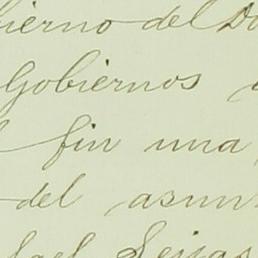 bierno del D
Gobiernos
fin una
del asun
fael Seijas